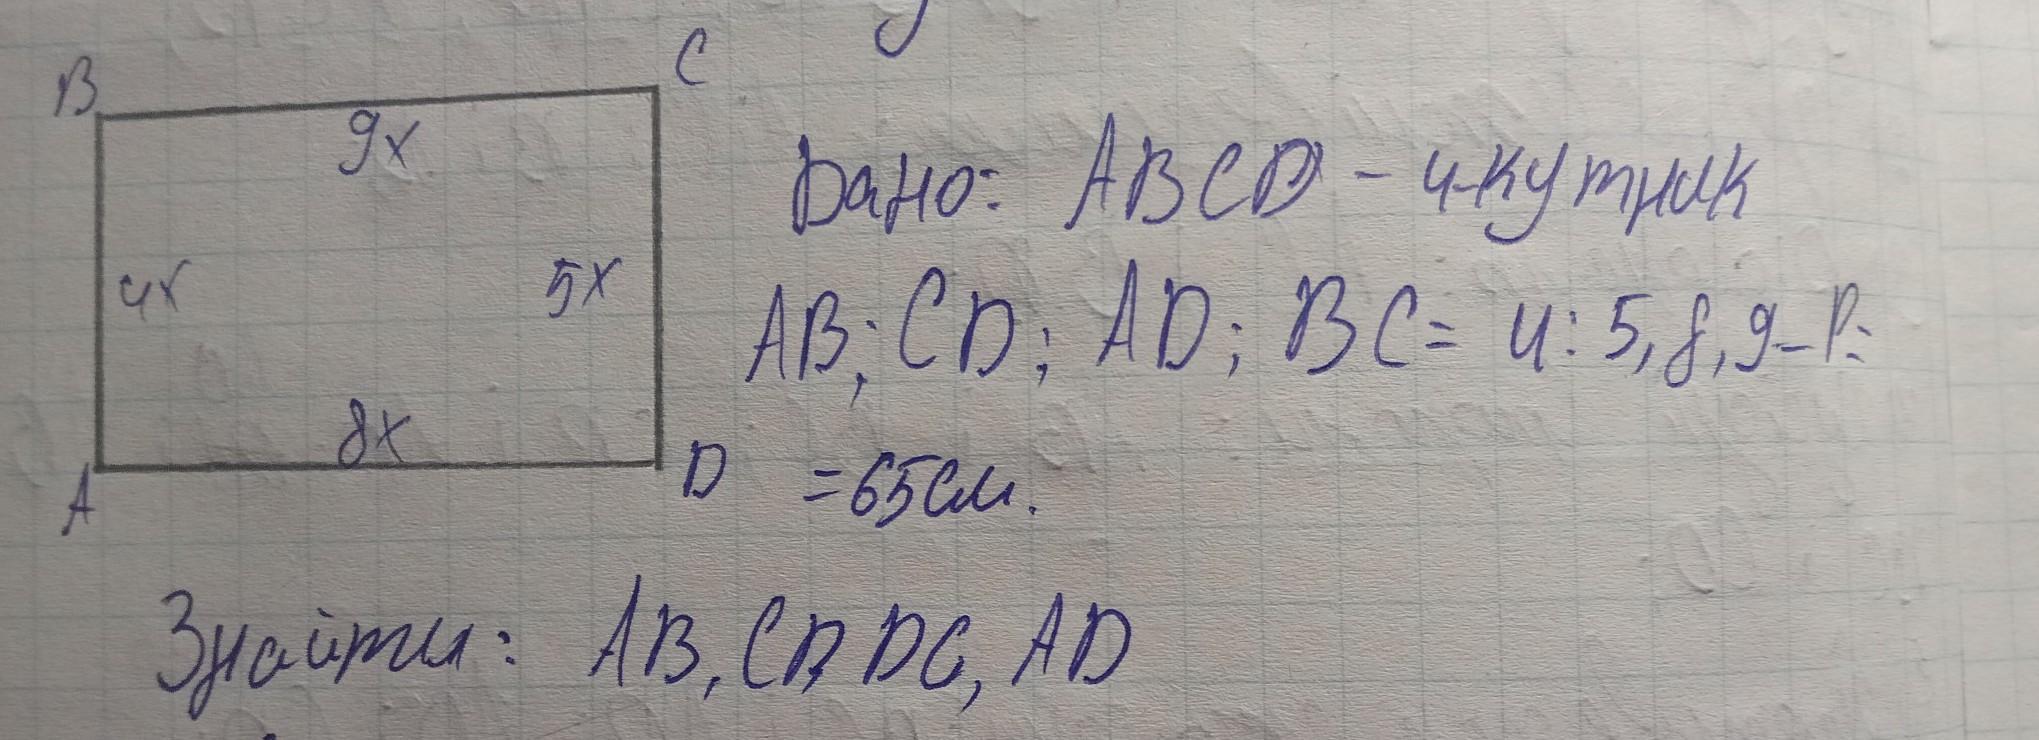 B
C
9x
Дано: ABCD - 4-кутник
4x
5x
AB; CD; AD; BC = 4:5,8,9-P=
8x
A
D
=65см.
Знайти: AB, CD, DC, AD